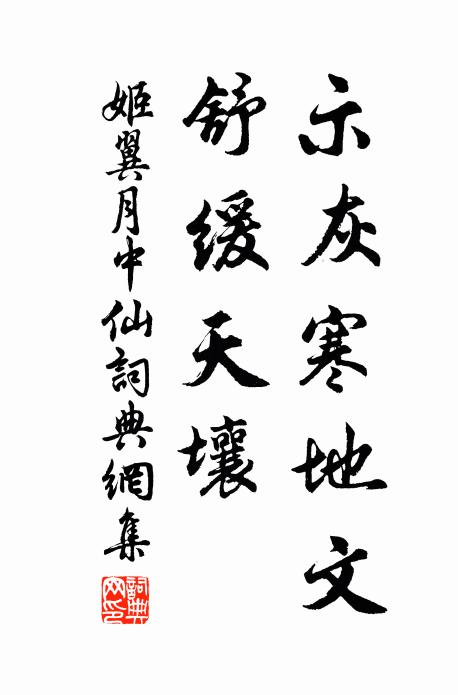 示灰寒地文
舒缓天壤
姬翼月中仙詞典網集
詞典網印